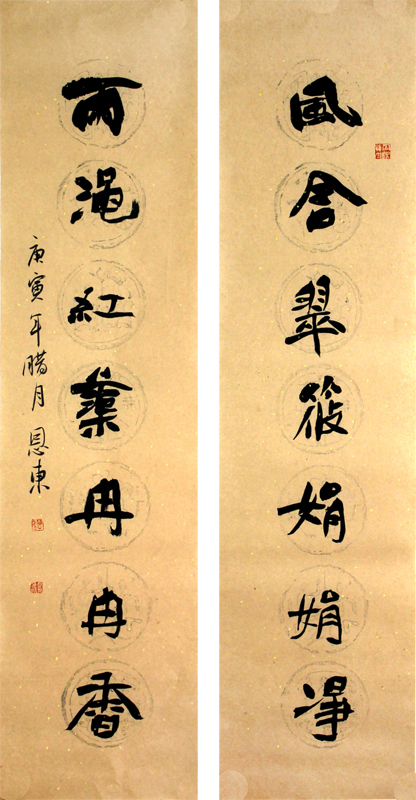 風含翠筱娟娟淨
雨浥紅蕖冉冉香
庚寅年腊月恩東